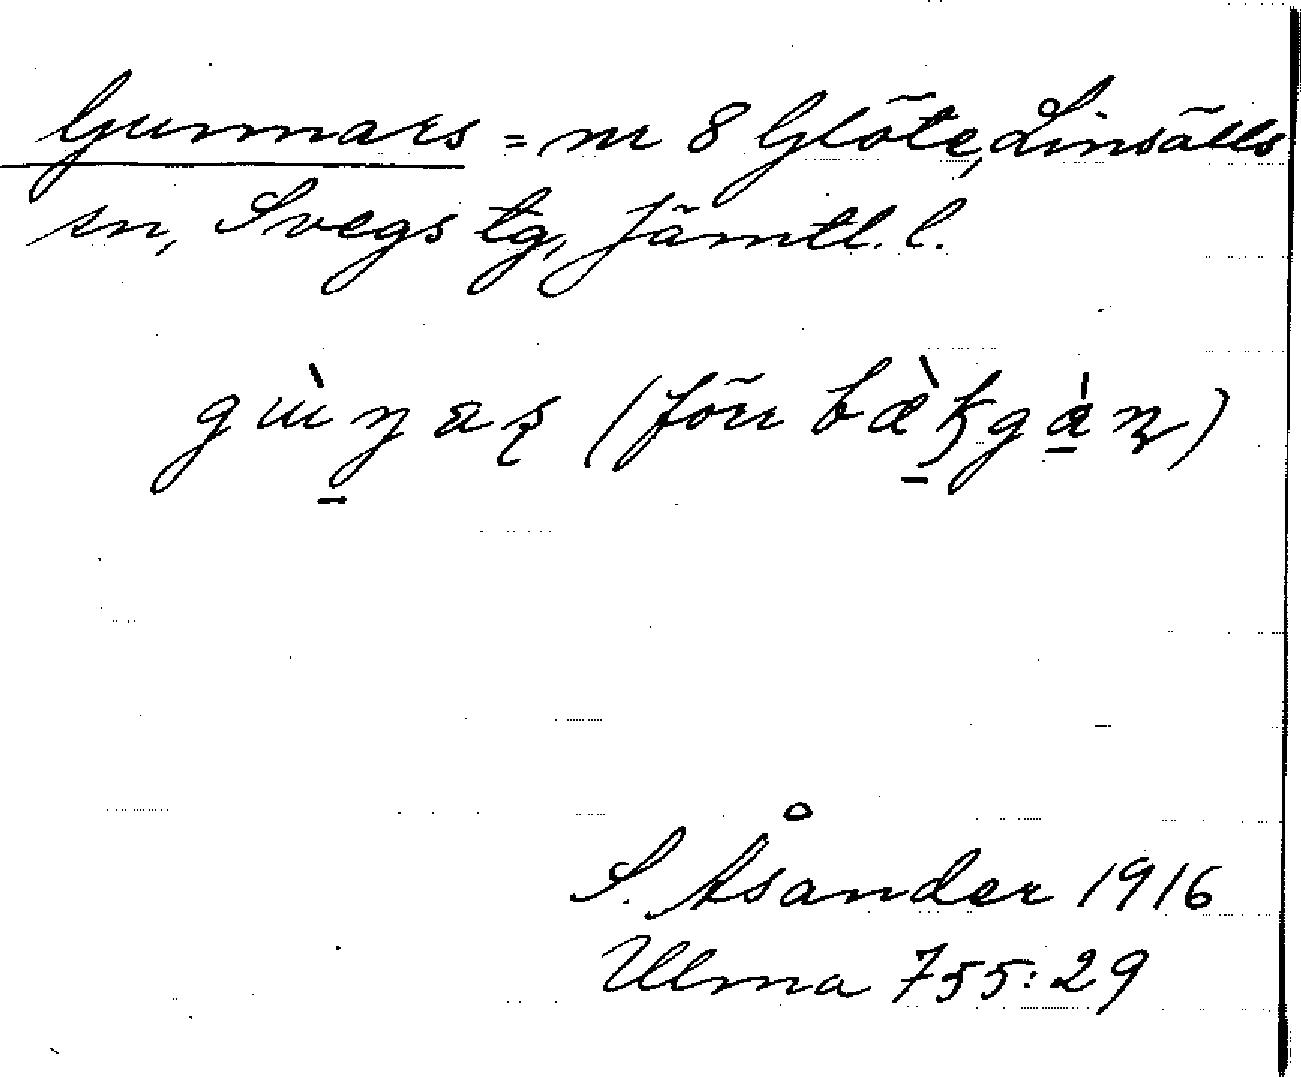 Gunnars = nr 8 Glöte, Linsälls
sn, Svegs tg, Jämtl. l.
(förr
S. Åsander 1916
Ulma 755:29